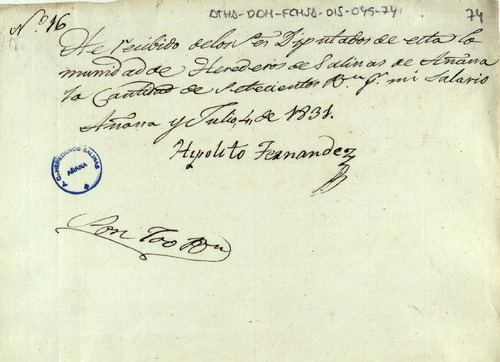 ATHA-DOM-FCHSA-015-045-74
74
Nº. 16
He recibido de los Sres Diputados de esta Co
munidad de Herederos de Salinas de Añana
la Cantidad de Setecientos Rs. Vn pr. mi Salario
Añana y Julio, 4, de 1831.
Hipolito Fernandez
A.C. HEREDEROS SALINAS
AÑANA
Son 700 Rvn